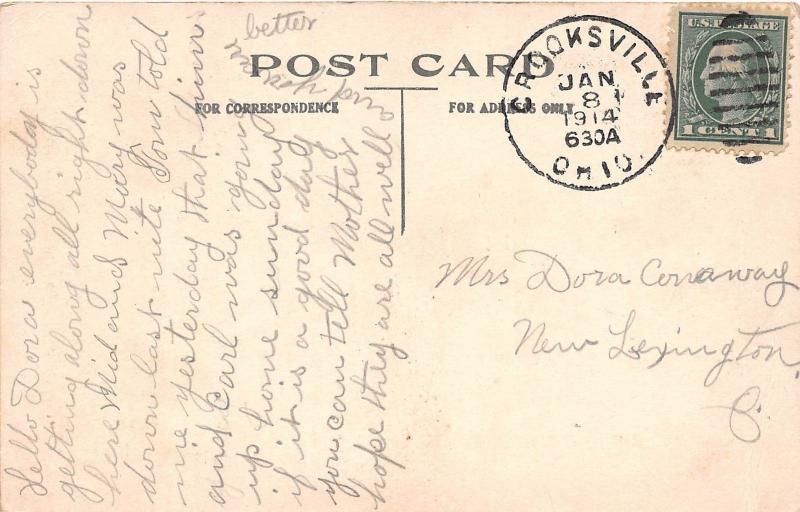 POST CARD
FOR CORRESPONDENCE
FOR ADDRESS ONLY
CROOKSVILLE
JAN
8
1914
630A
OHIO.
U.S. POSTAGE
1 CENT 1
Mrs Dora Conaway
New Lexington
O.
Hello Dora everybody is
getting along all right down
here Mid and Mary was
down last nite Tom told
me yesterday that him
and Carl was going
up home sunday
if it is a good day
you can tell Mother
hope they are all well
and your
better